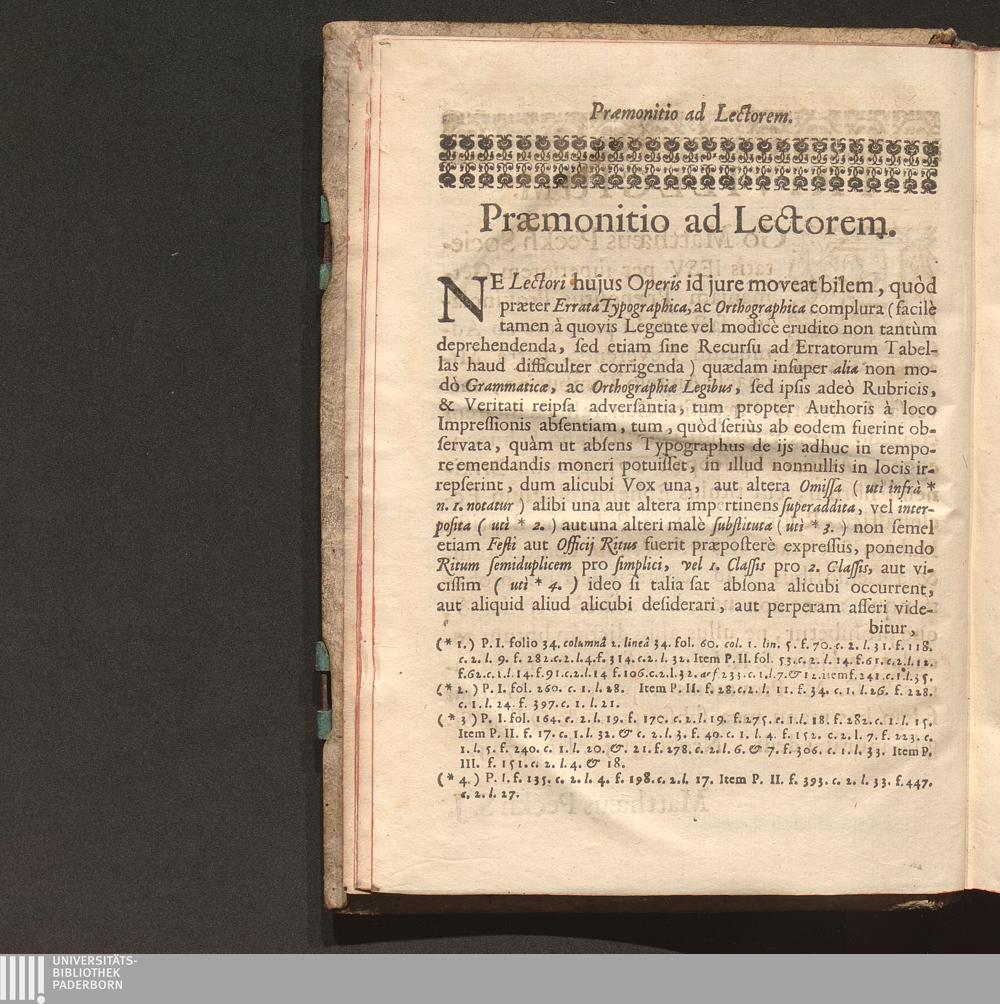 Præmonitio ad Lectorem.
Præmonitio ad Lectorem.
NE Lectori hujus Operis id jure moveat bilem, quòd
præter Errata Typographica, ac Orthographica complura (facilè
tamen à quovis Legente vel modicè erudito non tantùm
deprehendenda, ſed etiam ſine Recurſu ad Erratorum Tabel-
las haud difficulter corrigenda) quædam inſuper alia non mo-
dò Grammaticæ, ac Orthographiæ Legibus, ſed ipſis adeò Rubricis,
& Veritati reipſa adverſantia, tum propter Authoris à loco
Impreſſionis abſentiam, tum, quòd ſeriùs ab eodem fuerint ob-
ſervata, quàm ut abſens Typographus de ijs adhuc in tempo-
re emendandis moneri potuiſſet, in illud nonnullis in locis ir-
repſerint, dum alicubi Vox una, aut altera Omiſſa (uti infrà *
n. 1. notatur) alibi una aut altera impertinens ſuperaddita, vel inter-
poſita (utì * 2.) aut una alteri malè ſubſtituta (uti * 3.) non ſemel
etiam Feſti aut Officij Ritus fuerit præpoſterè expreſſus, ponendo
Ritum ſemiduplicem pro ſimplici, vel 1. Claſſis pro 2. Claſſis, aut vi-
ciſſim (utì * 4.) ideo ſi talia ſat abſona alicubi occurrent,
aut aliquid aliud alicubi deſiderari, aut perperam aſſeri vide-
bitur,
(* 1.) P. I. folio 34. columnâ 2. lineâ 34. fol. 60. col. 1. lin. 5. f. 70. c. 2. l. 31. f. 118.
c. 2. l. 9. f. 282. c. 2. l. 4. f. 314. c. 2. l. 32. Item P. II. fol. 53. c. 2. l. 14. f. 61. c. 2. l. 12.
f. 62. c. 1. l. 14. f. 91. c. 2. l. 14 f. 106. c. 2. l. 32. ac f 233. c. 1. l. 7. & 12. item f. 241. c. 1. l. 35.
(* 2.) P. I. fol. 260. c. 1. l. 28. Item P. II. f. 28. c. 2. l. 11. f. 34. c. 1. l. 26. f. 228.
c. 1. l. 24. f. 397. c. 1. l. 21.
(* 3) P. I. fol. 164. c. 2. l. 19. f. 170. c. 2. l. 19. f. 275. c. 1. l. 18. f. 282. c. 1. l. 15.
Item P. II. f. 17. c. 1. l. 32. & c. 2. l. 3. f. 40. c. 1. l. 4. f. 152. c. 2. l. 7. f. 223. c.
1. l. 5. f. 240. c. 1. l. 20. &. 21. f. 278. c. 2. l. 6. & 7. f. 306. c. 1. l. 33. Item P.
III. f. 151. c. 2. l. 4. & 18.
(* 4.) P. I. f. 135. c. 2. l. 4. f. 198. c. 2. l. 17. Item P. II. f. 393. c. 2. l. 33. f. 447.
c. 2. l. 27.
UNIVERSITÄTS-
BIBLIOTHEK
PADERBORN